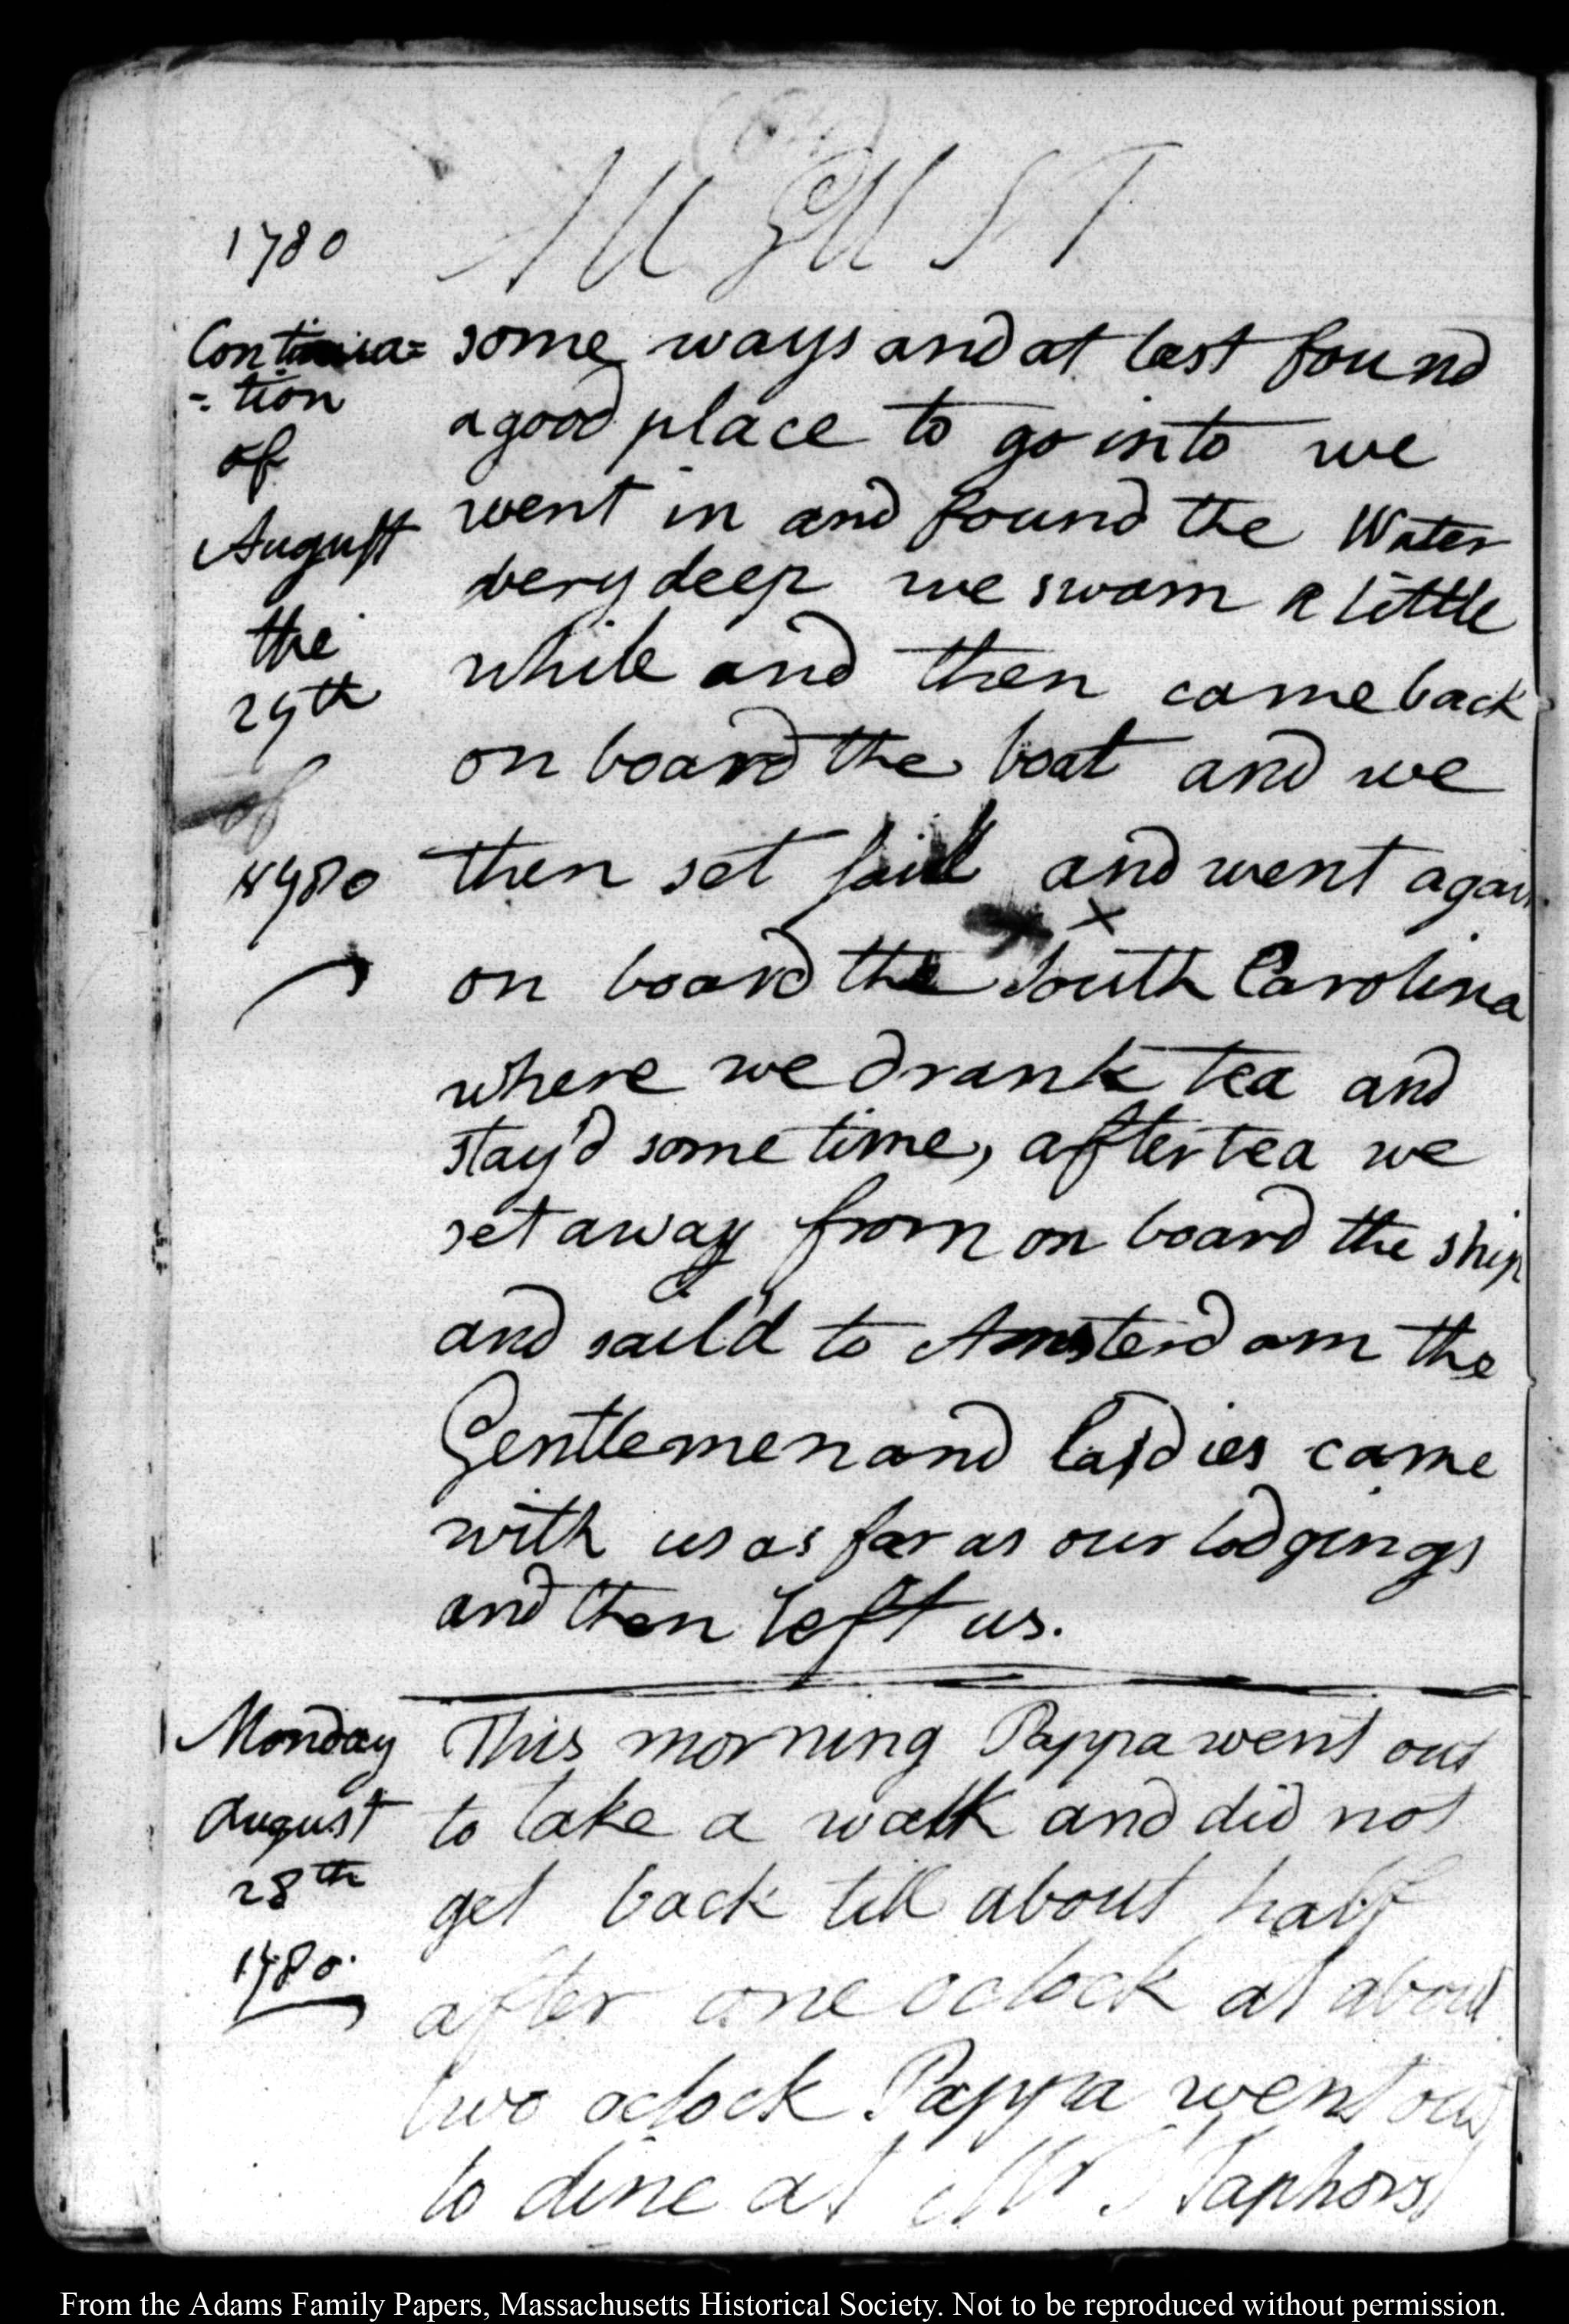 1780 AUGUST
Continua= some ways and at last found
=tion a good place to go into we
of went in and found the Water
August very deep we swam a little
the while and then came back
27th on board the boat and we
of
1780 then set sail and went again
on board the South Carolina
where we drank tea and
stay'd some time, after tea we
set away from on board the ship
and sail'd to Amsterdam the
Gentlemen and ladies came
with us as far as our lodgings
and then left us.
Monday This morning Pappa went out
August to take a walk and did not
28th get back till about half
1780. after one oclock at about
two oclock Pappa went out
to dine at Mr Staphorst
From the Adams Family Papers, Massachusetts Historical Society. Not to be reproduced without permission.